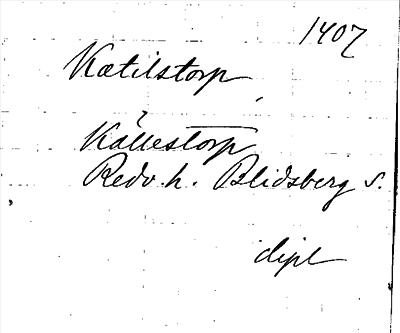 1407
Kætilstorp
?
Källestorp
Redv. h. Blidsberg s.
dipl